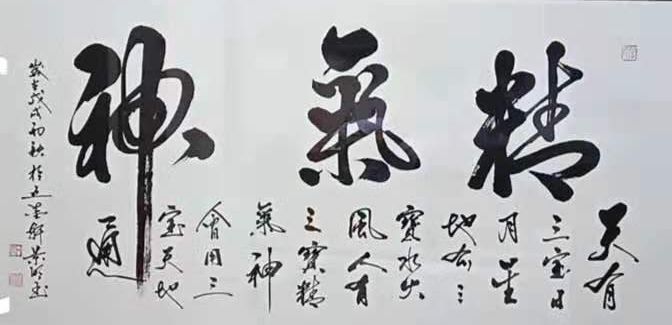 精氣神
天有
三宝日
月星
地有三
寶水火
風人有
三寶精
氣神
會用三
宝天地
通
歲在戊戌初秋於墨軒